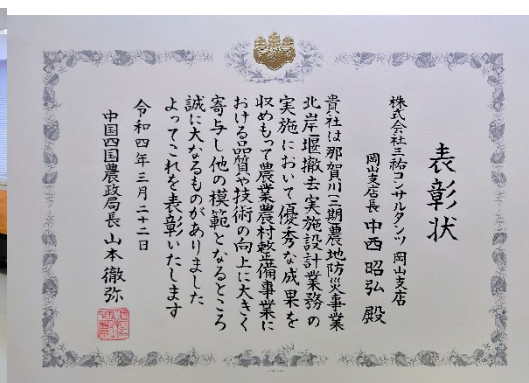 表彰状
株式会社三祐コンサルタンツ 岡山支店
岡山支店長 中西 昭弘 殿
貴社は那賀川二期農地防災事業
北岸堰撤去実施設計業務の
実施において優秀な成果を
収めもって農業農村整備事業に
おける品質や技術の向上に大きく
寄与し他の模範となるところ
誠に大なるものがありました
よってこれを表彰いたします
令和四年三月二十二日
中国四国農政局長 山本徹弥